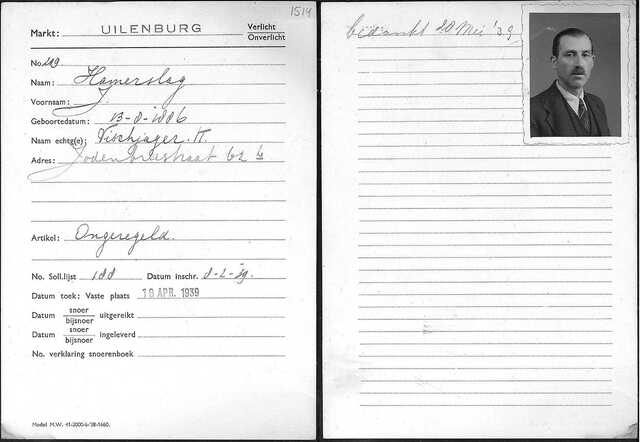 1514
Markt: UILENBURG Verlicht
Onverlicht
No. 219
Naam: Hamerslag
Voornaam: J.
Geboortedatum: 13-8-1886
Naam echtg(e): Vischjager. K.
Adres: Jodenbreestraat 62
Artikel: Ongeregeld.
No. Soll.lijst 188 Datum inschr. 8-2-39.
Datum toek: Vaste plaats 18 APR. 1939
Datum snoer uitgereikt
bijsnoer
Datum snoer ingeleverd
bijsnoer
No. verklaring snoerenboek
Model M.W. 41-2000-6/38-1660.
bedankt 20 Mei '39